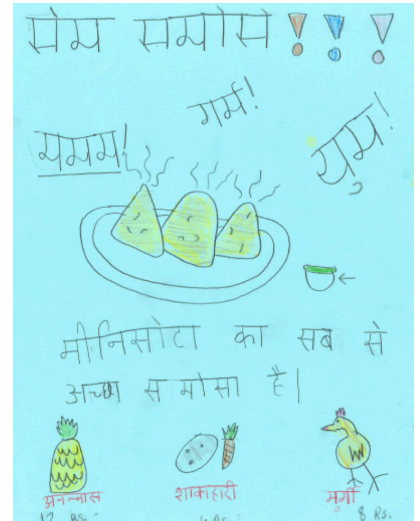 सेम समोसे !!!
गर्म!
यमम!
युम!
मीनिसोटा का सब से
अच्छा समोसा है|
अनन्नास शाकाहारी मुर्गी
12 Rs. 8 Rs.